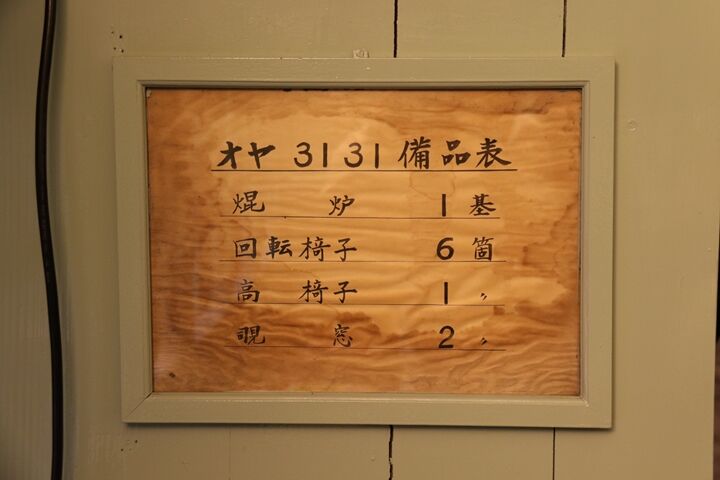 オヤ 3131 備品表
焜炉 1基
回転椅子 6箇
高椅子 1〃
覗窓 2〃